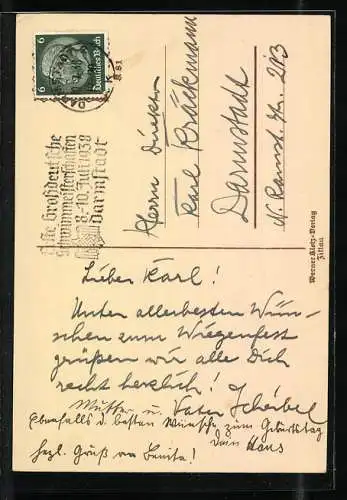 6 6
Deutsches Reich
Erste Großdeutsche
Schwimmeisterschaften
8.-10. Juli 1938
Darmstadt
Herrn
Karl Krückmann
Darmstadt
N. Ramst. Str. 213
Werner Klotz-Verlag
Zittau
Lieber Karl!
Unter allerbesten Wün-
schen zum Wiegenfest
grüßen wir alle Dich
recht herzlich!
Mutter u. Vater Scherbel
Ebenfalls d. besten Wünsche zum Geburtstag
Dein Hans
herzl. Gruß von Benita!